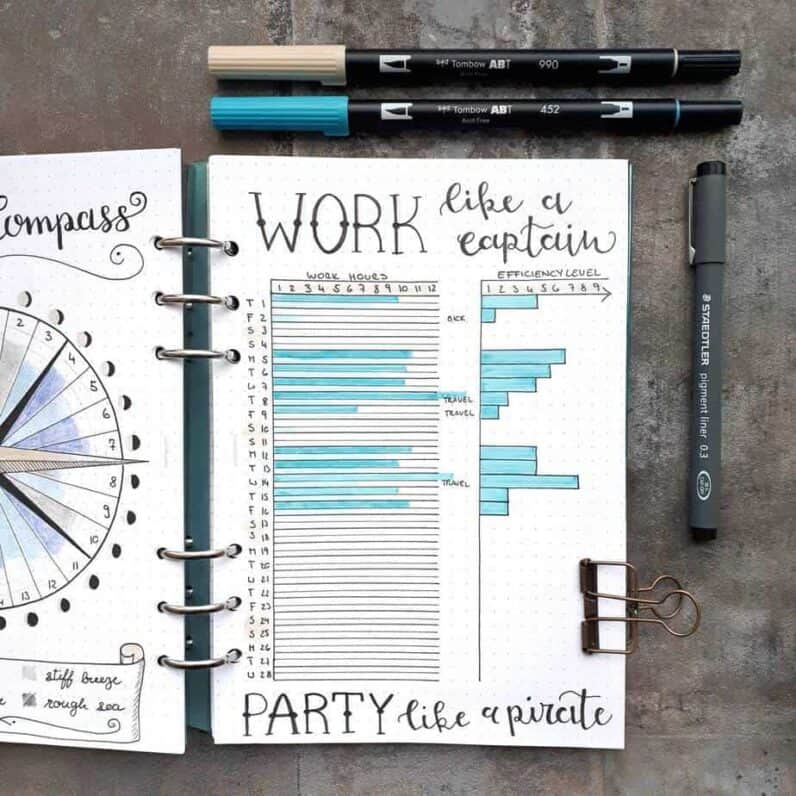 Tombow ABT 990
Acid Free
Tombow ABT 452
Acid Free
compass
2
3
4
5
6
7
8
9
10
11
12
13
14
stiff breeze
rough sea
WORK like a
captain
WORK HOURS
1 2 3 4 5 6 7 8 9 10 11 12
EFFICIENCY LEVEL
1 2 3 4 5 6 7 8 9
T 1
F 2 SICK
S 3
S 4
M 5
T 6
W 7
T 8 TRAVEL
F 9 TRAVEL
S 10
S 11
M 12
T 13
W 14 TRAVEL
T 15
F 16
S 17
S 18
M 19
T 20
W 21
T 22
F 23
S 24
S 25
M 26
T 27
W 28
PARTY like a pirate
STAEDTLER
pigment liner 0.3